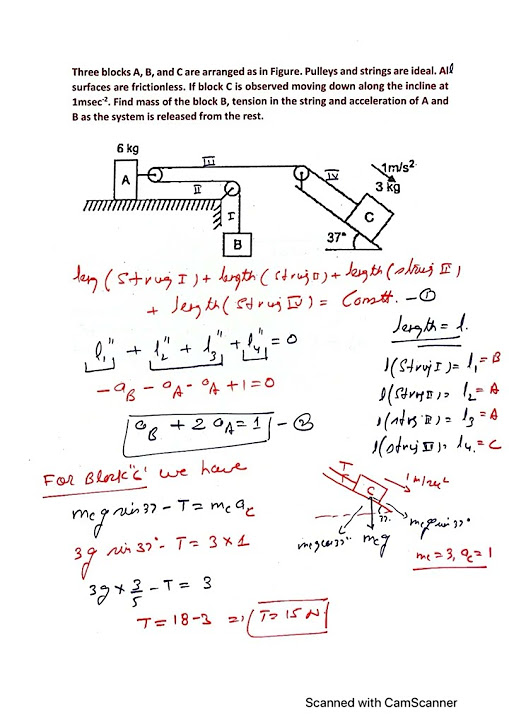 Three blocks A, B, and C are arranged as in Figure. Pulleys and strings are ideal. All
surfaces are frictionless. If block C is observed moving down along the incline at
1msec⁻². Find mass of the block B, tension in the string and acceleration of A and
B as the system is released from the rest.
6 kg
A
III
II
I
B
IV
1m/s²
3 kg
C
37°
leng (String I) + length (string II) + length (string III)
+ length (String IV) = Constt. — ①
length = l.
l₁" + l₂" + l₃" + l₄" = 0
l (String I) = l₁ = B
- aB - aA - aA + 1 = 0
l (String II) = l₂ = A
l (string III) = l₃ = A
aB + 2 aA = 1 — ②
l (string IV) = l₄ = C
For Block "C" we have
T
C
1 m/sec²
mc g sin 37 - T = mc ac
37.
mg cos 37°
mcg
mcg sin 37°
3g sin 37° - T = 3 × 1
mc = 3, ac = 1
3g × 3/5 - T = 3
T = 18 - 3 ⇒ T = 15 N
Scanned with CamScanner